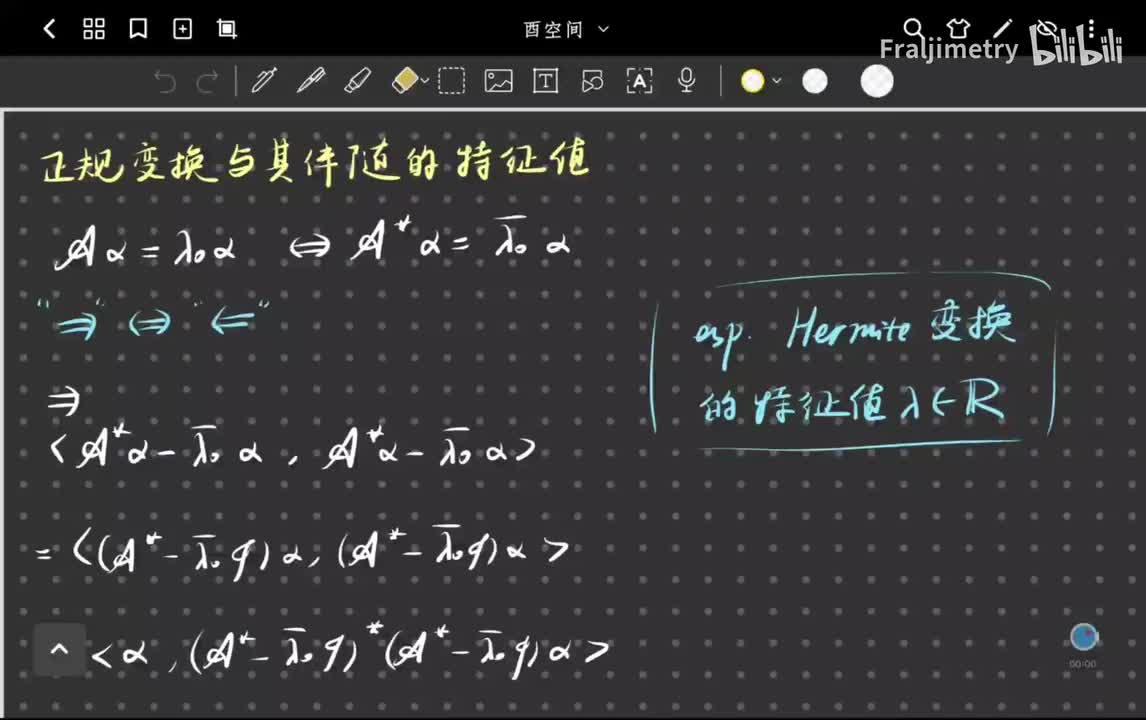 酉空间
Fraljimetry bilibili
正规变换与其伴随的特征值
𝒜α = λ₀α ⇔ 𝒜*α = λ̄₀ α
"⇒" ⇔ "⇐"
esp. Hermite 变换
的特征值 λ ∈ ℝ
⇒
<𝒜*α - λ̄₀ α , 𝒜*α - λ̄₀ α>
= <(𝒜* - λ̄₀ ℐ) α, (𝒜* - λ̄₀ ℐ) α>
<α , (𝒜* - λ̄₀ ℐ)* (𝒜* - λ̄₀ ℐ) α>
00:00